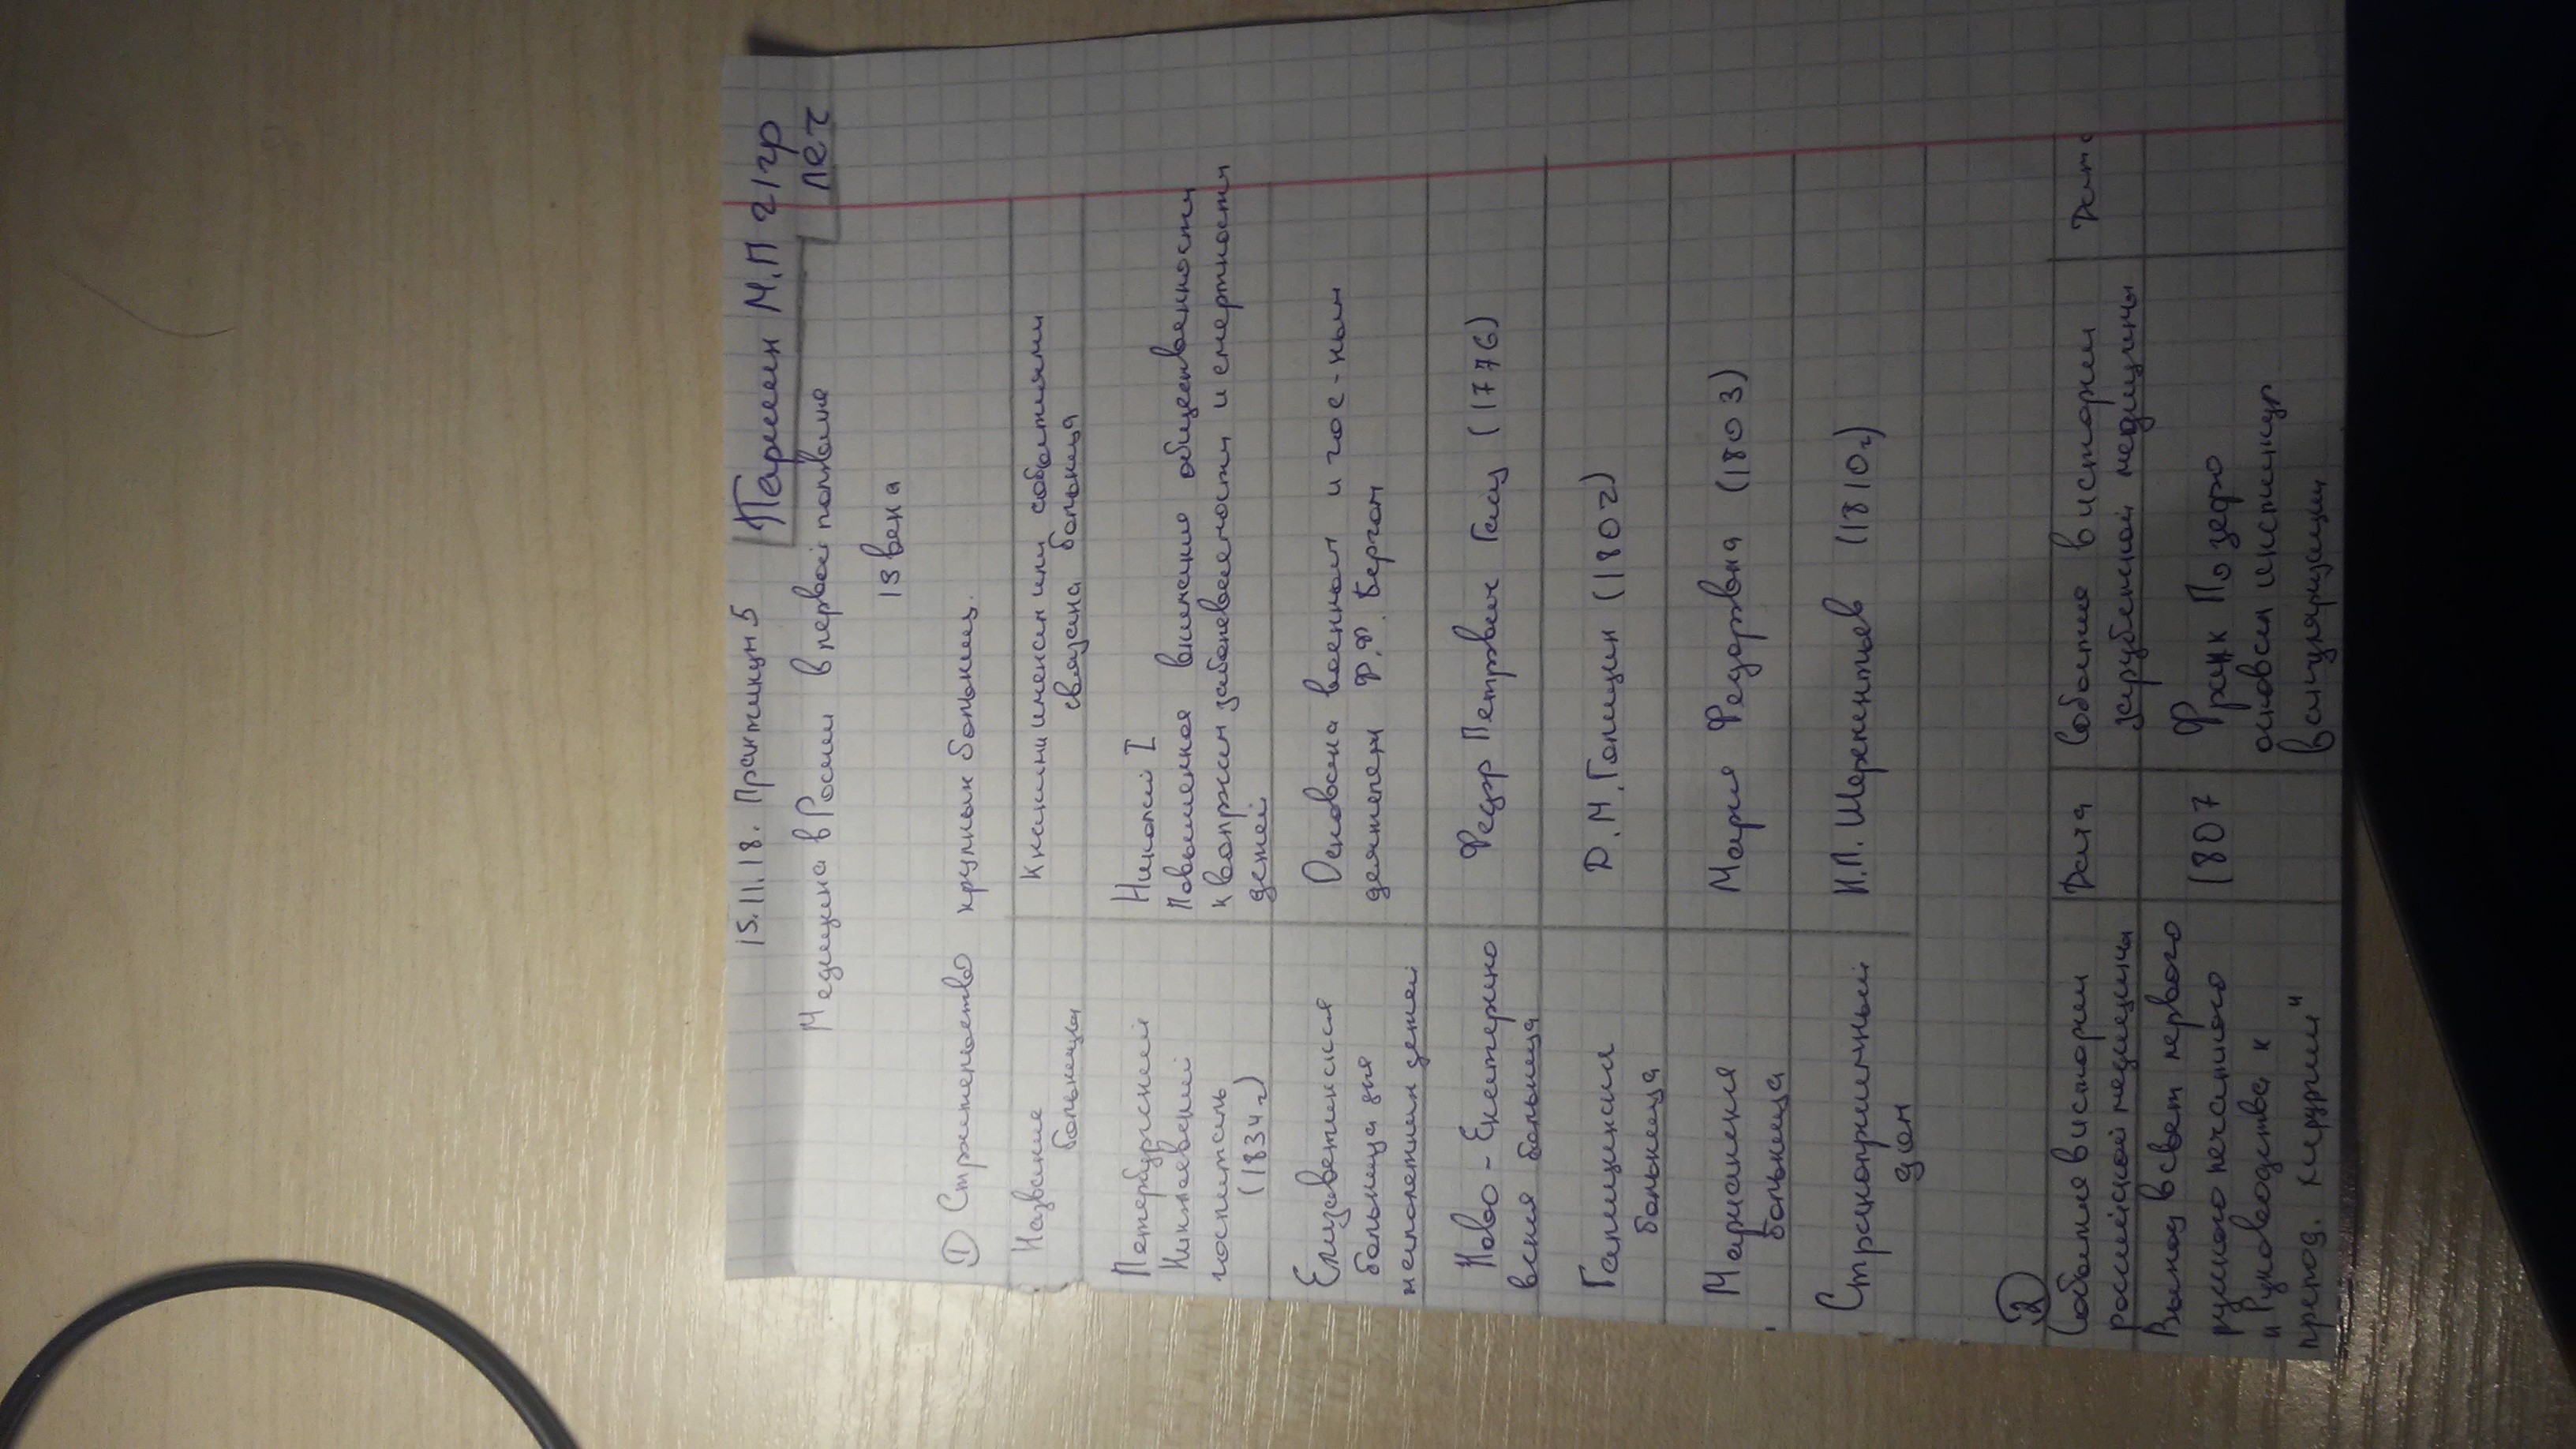 15.11.18. Практикум 5
Паршин М.П 21гр
леч
Медицина в России в первой половине
19 века
① Строительство крупных больниц.
Название больницы
К каким именам или событиям связана больница
Петербургский
Николаевский
госпиталь
(1834г)
Николай I
Повышенное внимание общественности
к вопросам заболеваемости и смертности
детей
Елизаветинская
больница для
малолетних детей
Основана военным и гос-ным
деятелем Ф.Ф. Бергом
Ново-Екатерино
вская больница
Федор Петрович Гааз (1776)
Галицинская
больница
Д.М.Голицин (1802)
Мариинская
больница
Мария Федоровна (1803)
Странноприимный
дом
Н.П. Шереметьев (1810г)
②
Событие в истории
российской медицины
Дата
Событие в истории
зарубежной медицины
Дата
Выход в свет первого
русского печатного
"Руководства к
препод. хирургии"
1807
Франк Подеро
основал инспекцию
вакцинации